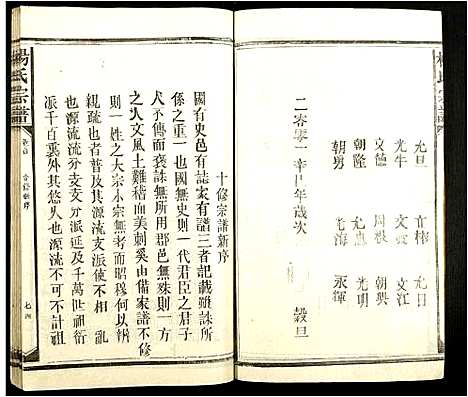 楊氏宗譜
光旦 官棒 光日
光牛 文安 文江
文德 周根 朝興
朝隆 光明
朝勇 光海 永輝
二零零一辛巳年歲次 穀旦
十修宗譜新序
國有史邑有誌家有譜三者記載雖詠所
係之重一也國無史則一代君臣之君子
不予傳而姦褒誅無所用郡邑無殊則一方
之人文風土難稽而美刺奚由備家譜不修
則一姓之大宗小宗無所而昭穆何以辨
親疏有也及其源流支派使不相亂
也源流流分支支分派延及千萬世祖衍
派千百裏外其悠久也源流不可不計祖
楊氏宗譜
卷首
十修新序
七四